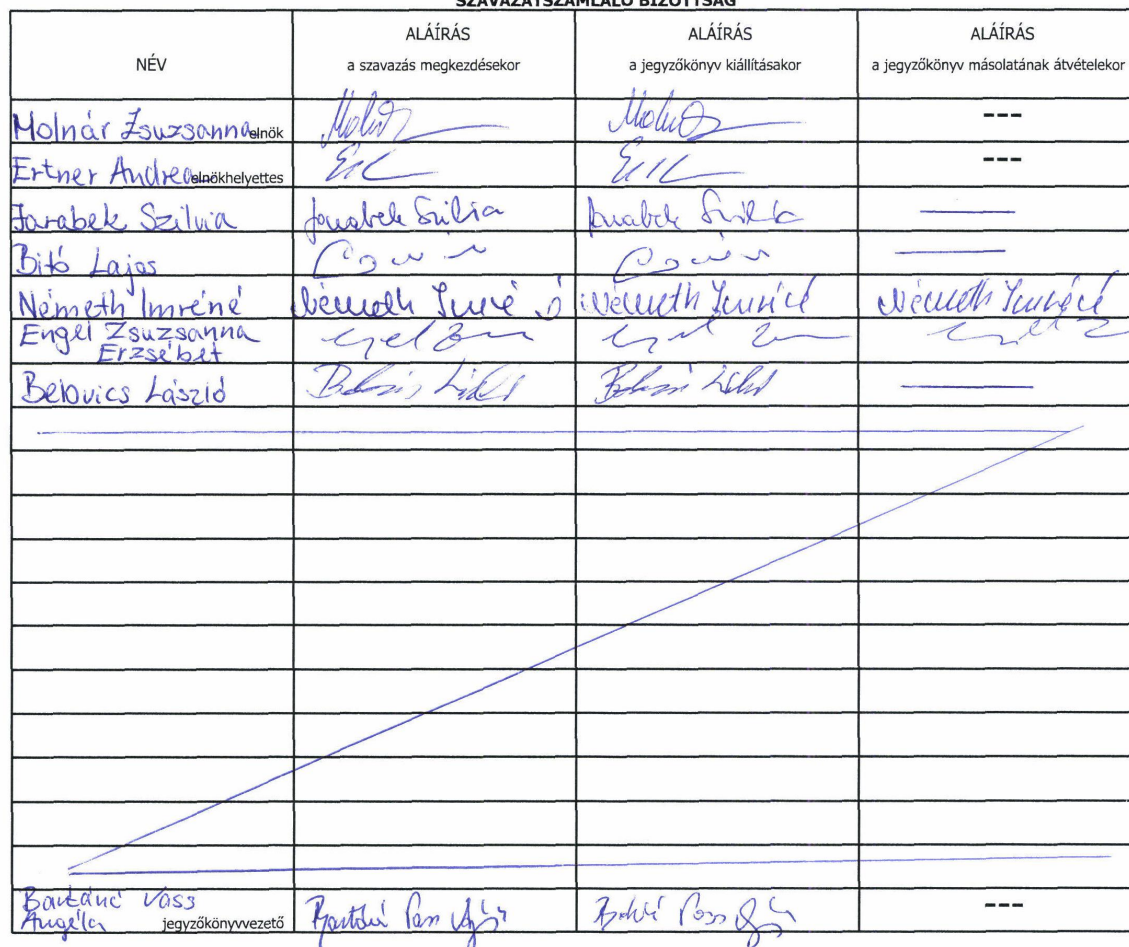 SZAVAZATSZÁMLÁLÓ BIZOTTSÁG
NÉV
ALÁÍRÁS
a szavazás megkezdésekor
ALÁÍRÁS
a jegyzőkönyv kiállításakor
ALÁÍRÁS
a jegyzőkönyv másolatának átvételekor
Molnár Zsuzsanna elnök ---
Ertner Andrea elnökhelyettes ---
Jarabek Szilvia Jarabek Szilvia Jarabek Szilvia
Bitó Lajos
Németh Imréné Németh Imréné Németh Imréné Németh Imréné
Engel Zsuzsanna
Erzsébet
Belovics László
Vass
Angéla jegyzőkönyvvezető ---